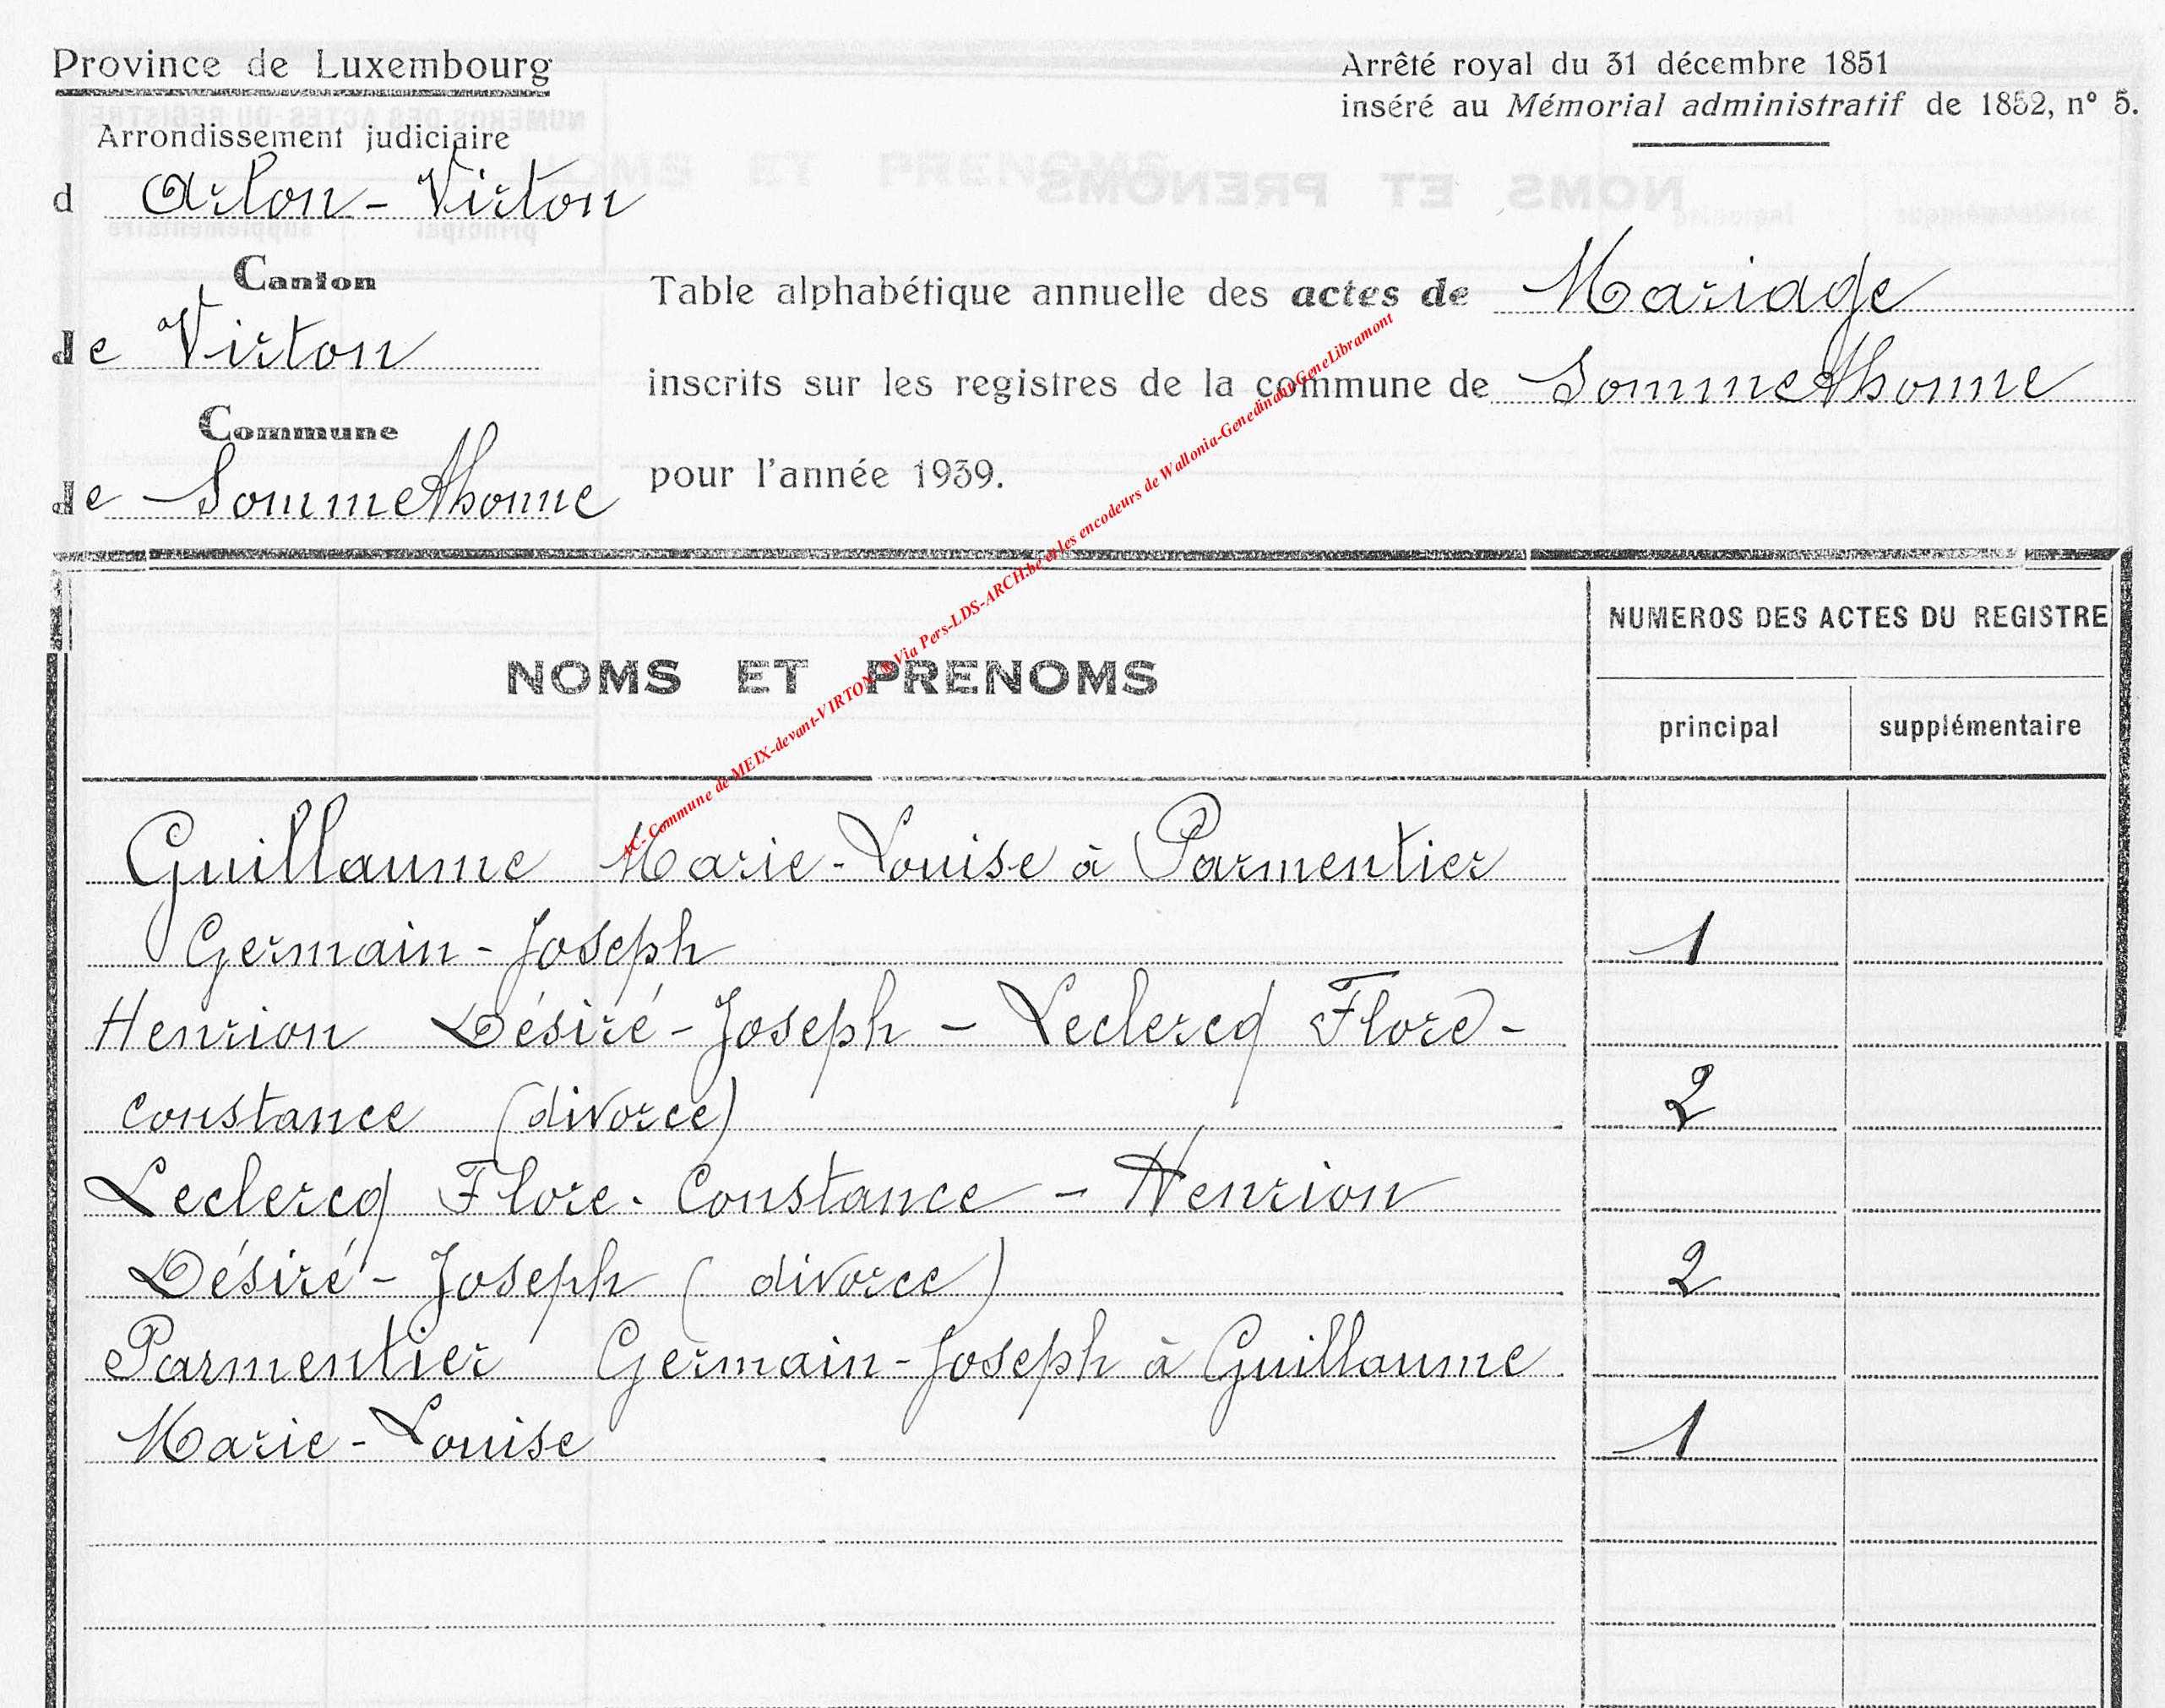 Province de Luxembourg
Arrondissement judiciaire
d Arlon - Virton
Canton
de Virton
Commune
de Sommethonne
Arrêté royal du 31 décembre 1851
inséré au Mémorial administratif de 1852, n° 5.
Table alphabétique annuelle des actes de Mariage
inscrits sur les registres de la commune de Sommethonne
pour l'année 1939.
AC- Commune de MEIX-devant-VIRTON & Via Pers-LDS-ARCH.be et les encodeurs de Wallonia-Genedinant-GeneLibramont
NOMS ET PRENOMS
NUMEROS DES ACTES DU REGISTRE
principal supplémentaire
Guillaume Marie-Louise à Parmentier
Germain-Joseph 1
Henrion Désiré-Joseph - Leclercq Flore-
Constance (divorce) 2
Leclercq Flore-Constance - Henrion
Désiré-Joseph (divorce) 2
Parmentier Germain-Joseph à Guillaume
Marie-Louise 1